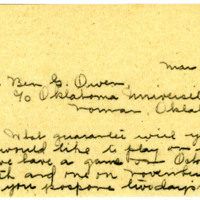 Mar
Ben G. Owen,
c/o Oklahoma Universit
Norman, Okla
What guarantee will y
would like to play on
we have a game Oct
th and one on Novemb
you postpone two days